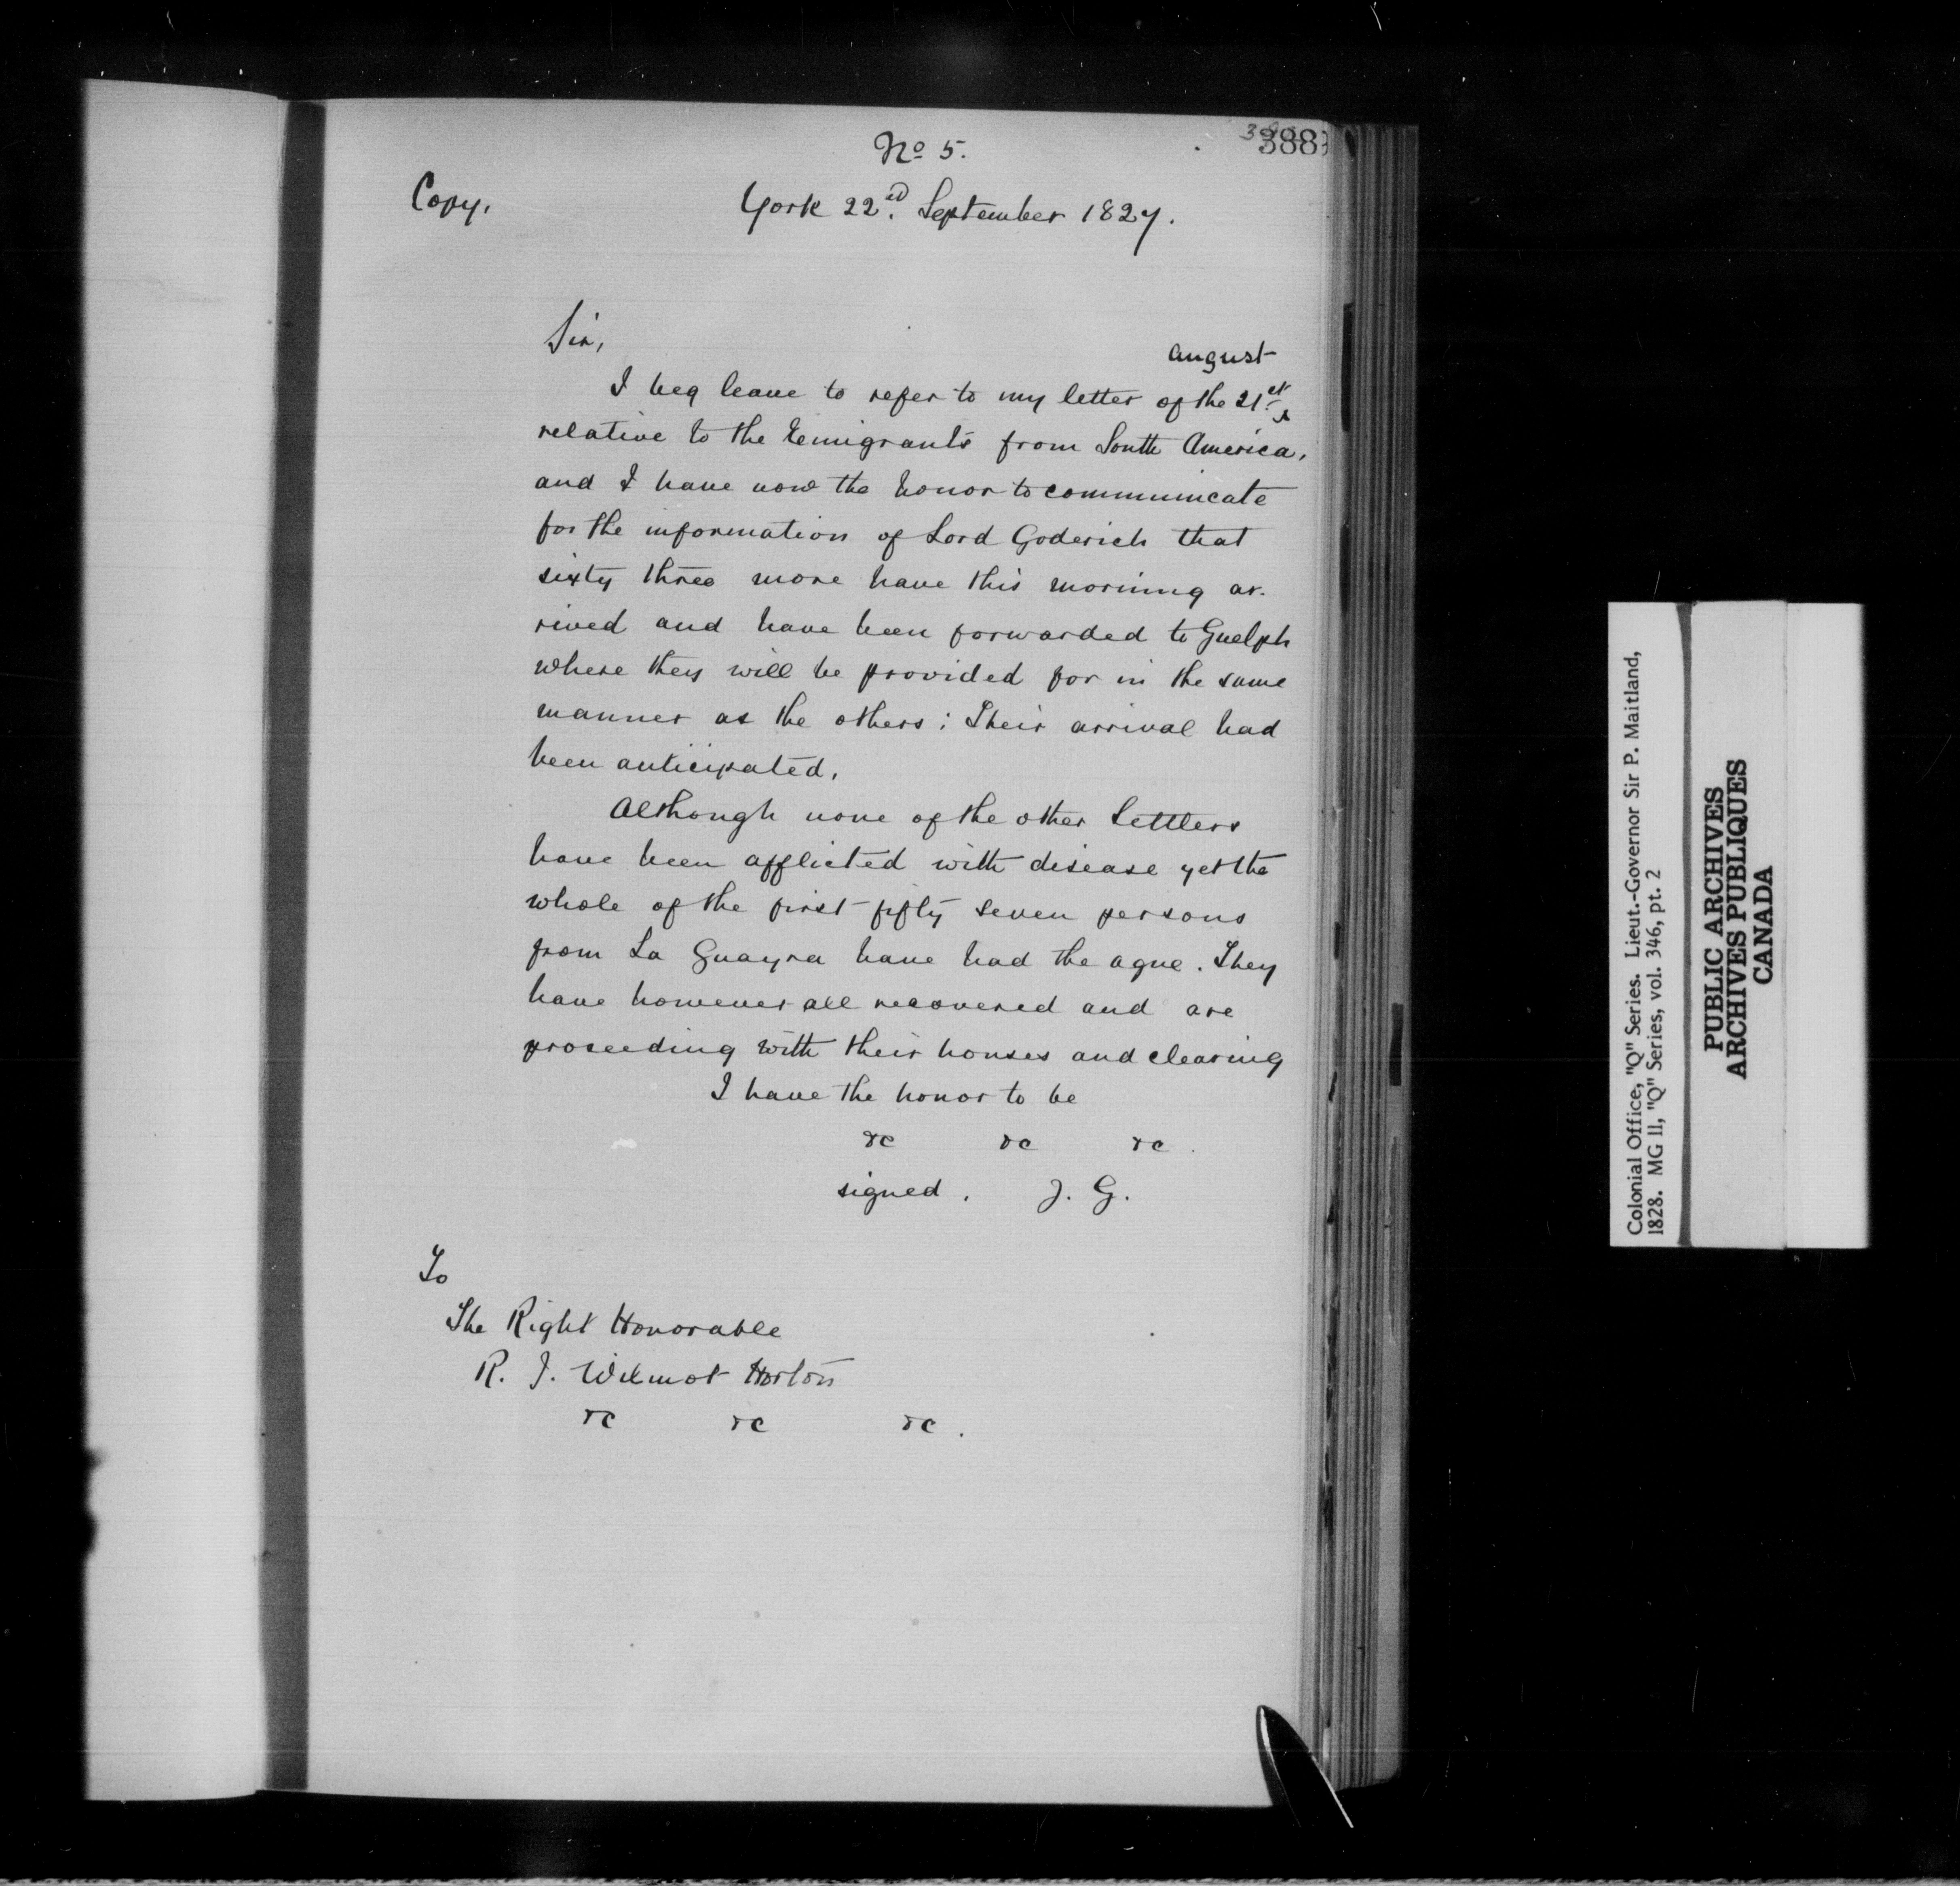 388
No 5.
Copy.
York 22nd. September 1827.
Sir,
august
I beg leave to refer to my letter of the 21st
relative to the Emigrants from South America,
and I have now the honor to communicate
for the information of Lord Goderich that
sixty three more have this morning ar-
rived and have been forwarded to Guelph
where they will be provided for in the same
manner as the others; Their arrival had
been anticipated.
Although none of the other Settlers
have been afflicted with disease yet the
whole of the first fifty seven persons
from La Guayra have had the ague. They
have however all recovered and are
proseeding with their houses and clearing
I have the honor to be
&c &c &c.
signed. J. G.
To
The Right Honorable
R. J. Wilmot Horton
&c &c &c.
Colonial Office, "Q" Series. Lieut.-Governor Sir P. Maitland,
1828. MG 11, "Q" Series, vol. 346, pt. 2
PUBLIC ARCHIVES
ARCHIVES PUBLIQUES
CANADA